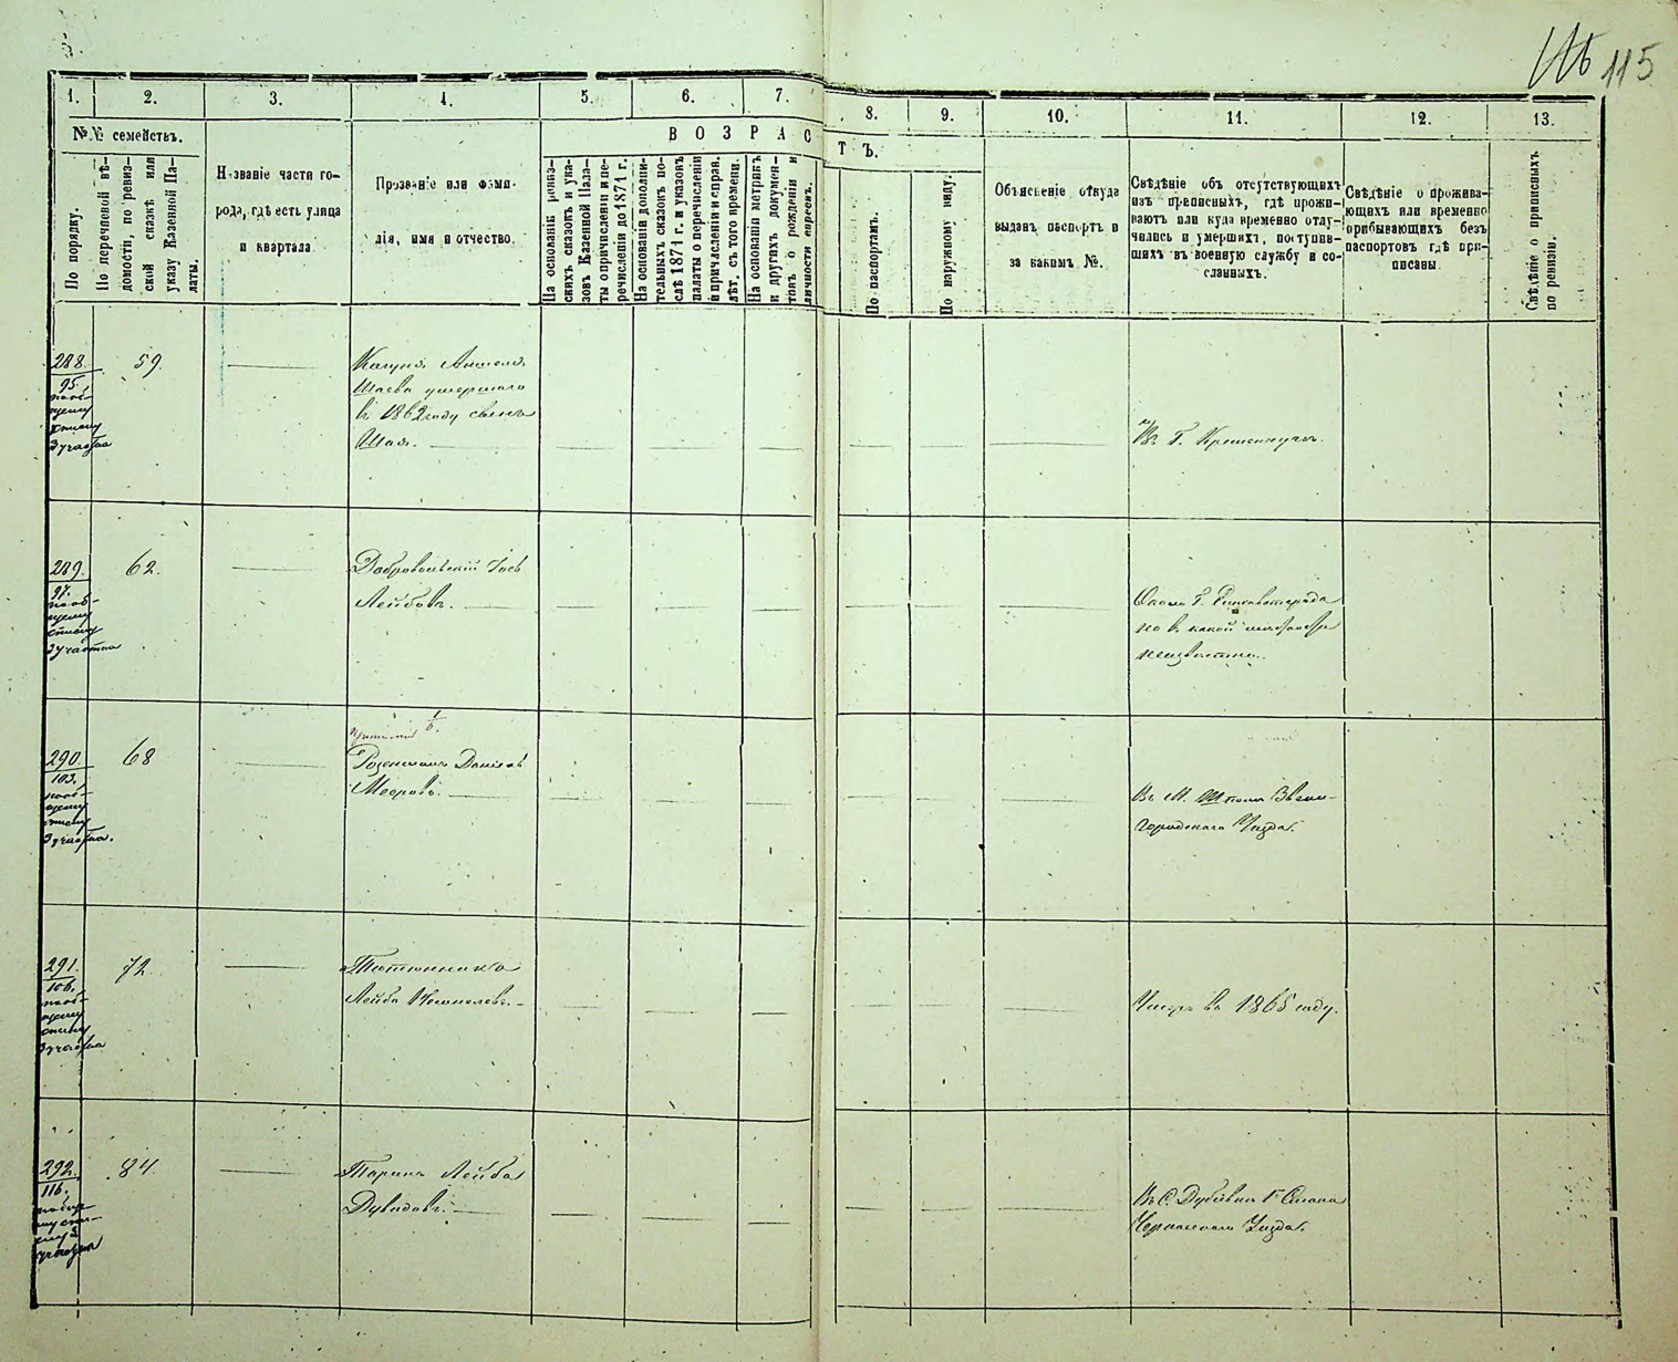 115
1. 2. 3. 4. 5. 6. 7. 8. 9. 10. 11. 12. 13.
№№ семействъ.
По порядку.
По перечневой вѣ-
домости, по ревиз-
ской сказкѣ или
указу Казенной Па-
латы.
Названіе части го-
рода, гдѣ есть улица
и квартала
Прозваніе или фами-
лія, имя и отчество.
ВОЗРАСТЪ.
На основаніи ревиз-
скихъ сказокъ и ука-
зовъ Казенной Пала-
ты о причисленіи и пе-
речисленіи до 1871 г.
На основаніи дополни-
тельныхъ сказокъ по-
слѣ 1871 г. и указовъ
палаты о перечисленіи
и причисленіи и справ.
лѣт. съ того времени.
На основаніи метрикъ
и другихъ докумен-
товъ о рожденіи и
личности евреевъ.
По паспортамъ.
По наружному виду.
Объясненіе откуда
выданъ паспортъ и
за какимъ №.
Свѣдѣніе объ отсутствующихъ
изъ приписныхъ, гдѣ прожи-
ваютъ или куда временно отлу-
чились и умершихъ, поступив-
шихъ въ военную службу и со-
сланныхъ.
Свѣдѣніе о прожива-
ющихъ или временно
прибывающихъ безъ
паспортовъ гдѣ при-
писаны.
Свѣдѣніе о приписныхъ
по ревизіи.
288.
95.
по об-
щему
списку
3 участка
59.
Шаева умершаго
въ 1862 году сынъ
Шая.
Въ Г. Кременчугъ.
289.
97.
по об-
щему
списку
3 участка
62.
Добровольскій Іось
Лейбовъ.
Около Г. Елисаветграда
но въ какой
неизвѣстно.
290.
103.
по об-
щему
списку
3 участка.
68
Розенманъ Даніель
Меоровъ.
Въ М. Шпола Звени-
городскаго Уѣзда.
291.
106.
по об-
щему
списку
3 участка
72
Лейба
Умеръ въ 1865 году.
292.
116.
по общ-
ему спи-
ску 3
участка
84.
Лейба
Дувидовъ.
Въ С. Дубіевка Г. Смела
Черкасскаго Уѣзда.